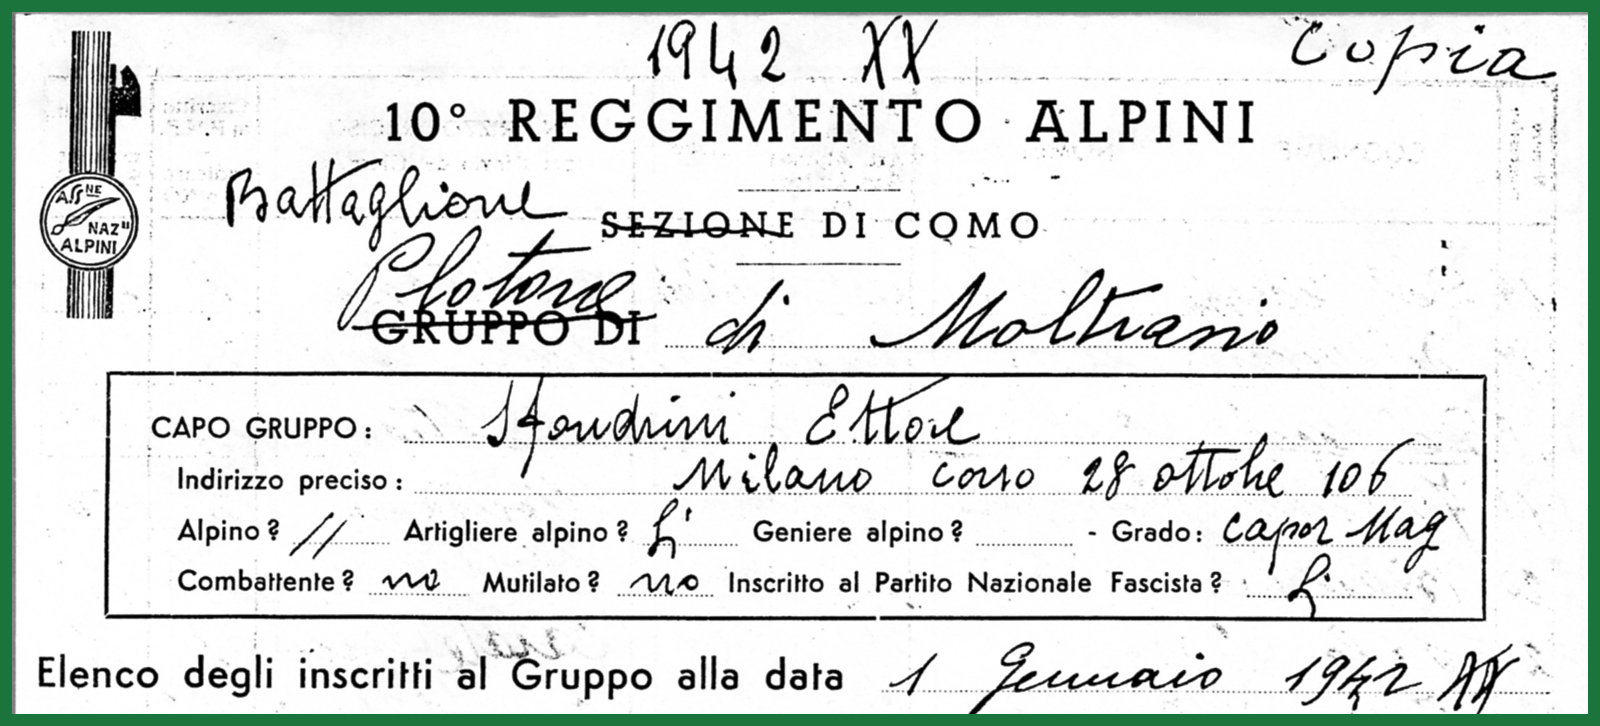 1942 XX
Copia
10° REGGIMENTO ALPINI
ASS.NE
NAZ"
ALPINI
Battaglione SEZIONE DI COMO
Plotone
GRUPPO DI di Moltrasio
CAPO GRUPPO: Sfondrini Ettore
Indirizzo preciso: Milano corso 28 ottobre 106
Alpino? // Artigliere alpino? Si Geniere alpino? - Grado: Capor Mag
Combattente? no Mutilato? no Inscritto al Partito Nazionale Fascista? Si
Elenco degli inscritti al Gruppo alla data 1 Gennaio 1942 XX